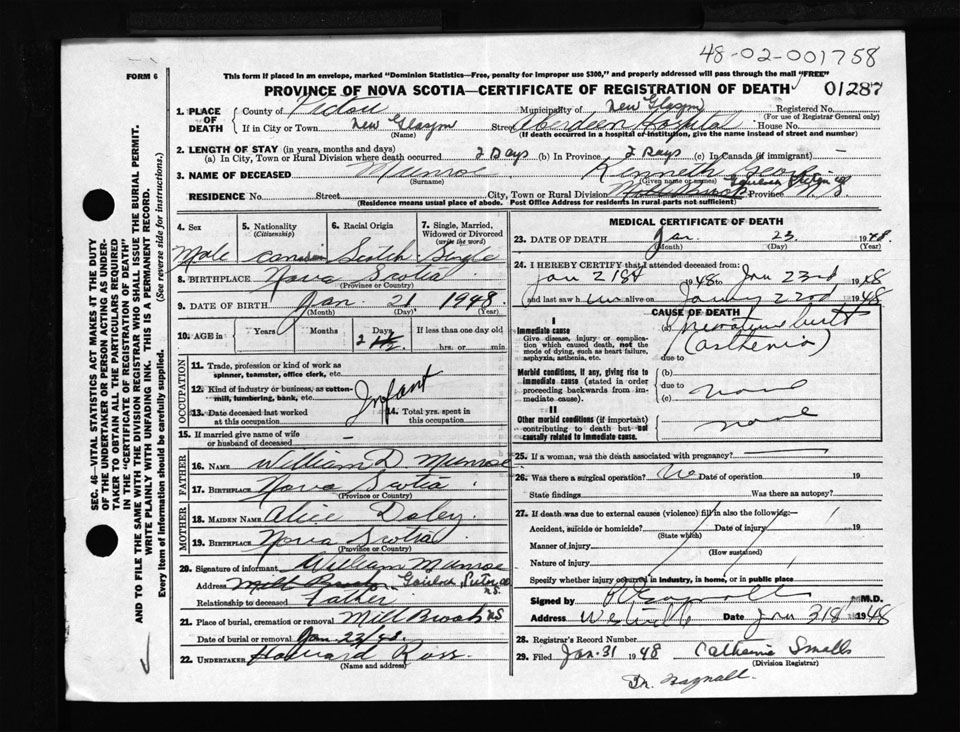 48-02-001758
FORM 6
This form if placed in an envelope, marked "Dominion Statistics—Free, penalty for improper use $300," and properly addressed will pass through the mail "FREE"
PROVINCE OF NOVA SCOTIA—CERTIFICATE OF REGISTRATION OF DEATH 01287
1. PLACE OF DEATH
County of Pictou Municipality of New Glasgow Registered No.
(For use of Registrar General only)
If in City or Town New Glasgow Street Aberdeen Hospital House No.
(Name) (If death occurred in a hospital or institution, give the name instead of street and number)
2. LENGTH OF STAY (in years, months and days)
(a) In City, Town or Rural Division where death occurred 2 Days (b) In Province 2 Days (c) In Canada (if immigrant) —
3. NAME OF DECEASED Munroe Kenneth George
(Surname) (Given name or names)
RESIDENCE No. Street City, Town or Rural Division Millbrook Gairloch Pictou Co Province N.S.
(Residence means usual place of abode. Post Office Address for residents in rural parts not sufficient)
4. Sex Male
5. Nationality (Citizenship) Canadian
6. Racial Origin Scotch
7. Single, Married, Widowed or Divorced (write the word) Single
8. BIRTHPLACE Nova Scotia
(Province or Country)
9. DATE OF BIRTH Jan. 21 1948
(Month) (Day) (Year)
10. AGE in Years Months Days 2 If less than one day old
hrs. or min
OCCUPATION
11. Trade, profession or kind of work as spinner, teamster, office clerk, etc.
12. Kind of industry or business, as cotton-mill, lumbering, bank, etc. Infant
13. Date deceased last worked at this occupation
14. Total yrs. spent in this occupation
15. If married give name of wife or husband of deceased —
FATHER
16. NAME William D. Munroe
17. BIRTHPLACE Nova Scotia
(Province or Country)
MOTHER
18. MAIDEN NAME Alice Daley
19. BIRTHPLACE Nova Scotia
(Province or Country)
20. Signature of informant William Munroe
Address Mill Brook Gairloch Pictou Co N.S.
Relationship to deceased Father
21. Place of burial, cremation or removal Mill Brook NS
Date of burial or removal Jan 23/48
22. UNDERTAKER Howard Ross
(Name and address)
MEDICAL CERTIFICATE OF DEATH
23. DATE OF DEATH Jan. 23 1948
(Month) (Day) (Year)
24. I HEREBY CERTIFY that I attended deceased from:
Jan 21st 1948 to Jan 23rd 1948
and last saw him alive on January 22nd 1948
CAUSE OF DEATH
I
Immediate cause
Give disease, injury or complication which caused death, not the mode of dying, such as heart failure, asphyxia, asthenia, etc.
(a) premature birth
(asthenia)
due to
Morbid conditions, if any, giving rise to immediate cause (stated in order proceeding backwards from immediate cause).
(b)
due to none
(c)
II
Other morbid conditions (if important) contributing to death but not causally related to immediate cause.
none
25. If a woman, was the death associated with pregnancy? —
26. Was there a surgical operation? No Date of operation 19
State findings Was there an autopsy?
27. If death was due to external causes (violence) fill in also the following:—
Accident, suicide or homicide? Date of injury 19
(State which)
Manner of injury
(How sustained)
Nature of injury
Specify whether injury occurred in industry, in home, or in public place
Signed by Bagnall M.D.
Address Westville Date Jan 31st 1948
28. Registrar's Record Number
29. Filed Jan. 31 1948 Catherine Smalls
(Division Registrar)
Dr. Bagnall.
SEC. 46—VITAL STATISTICS ACT MAKES IT THE DUTY
OF THE UNDERTAKER OR PERSON ACTING AS UNDER-
TAKER TO OBTAIN ALL THE PARTICULARS REQUIRED
IN THE "CERTIFICATE OF REGISTRATION OF DEATH"
AND TO FILE THE SAME WITH THE DIVISION REGISTRAR WHO SHALL ISSUE THE BURIAL PERMIT.
WRITE PLAINLY WITH UNFADING INK. THIS IS A PERMANENT RECORD.
Every item of information should be carefully supplied. (See reverse side for instructions.)